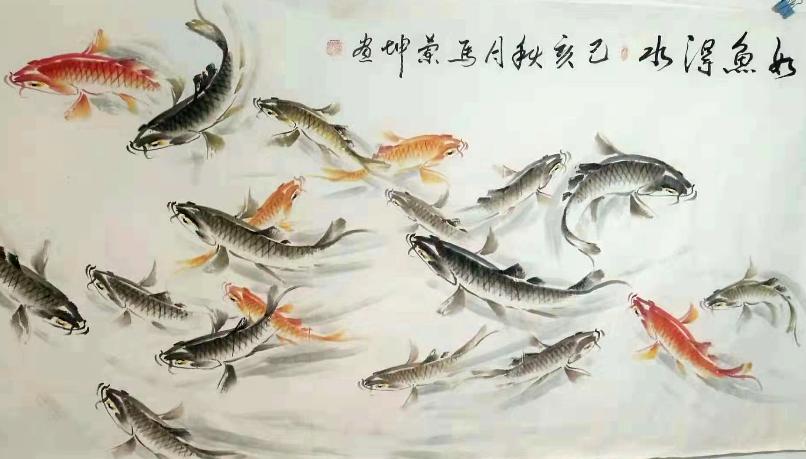 如魚得水 己亥秋月马荣坤畫